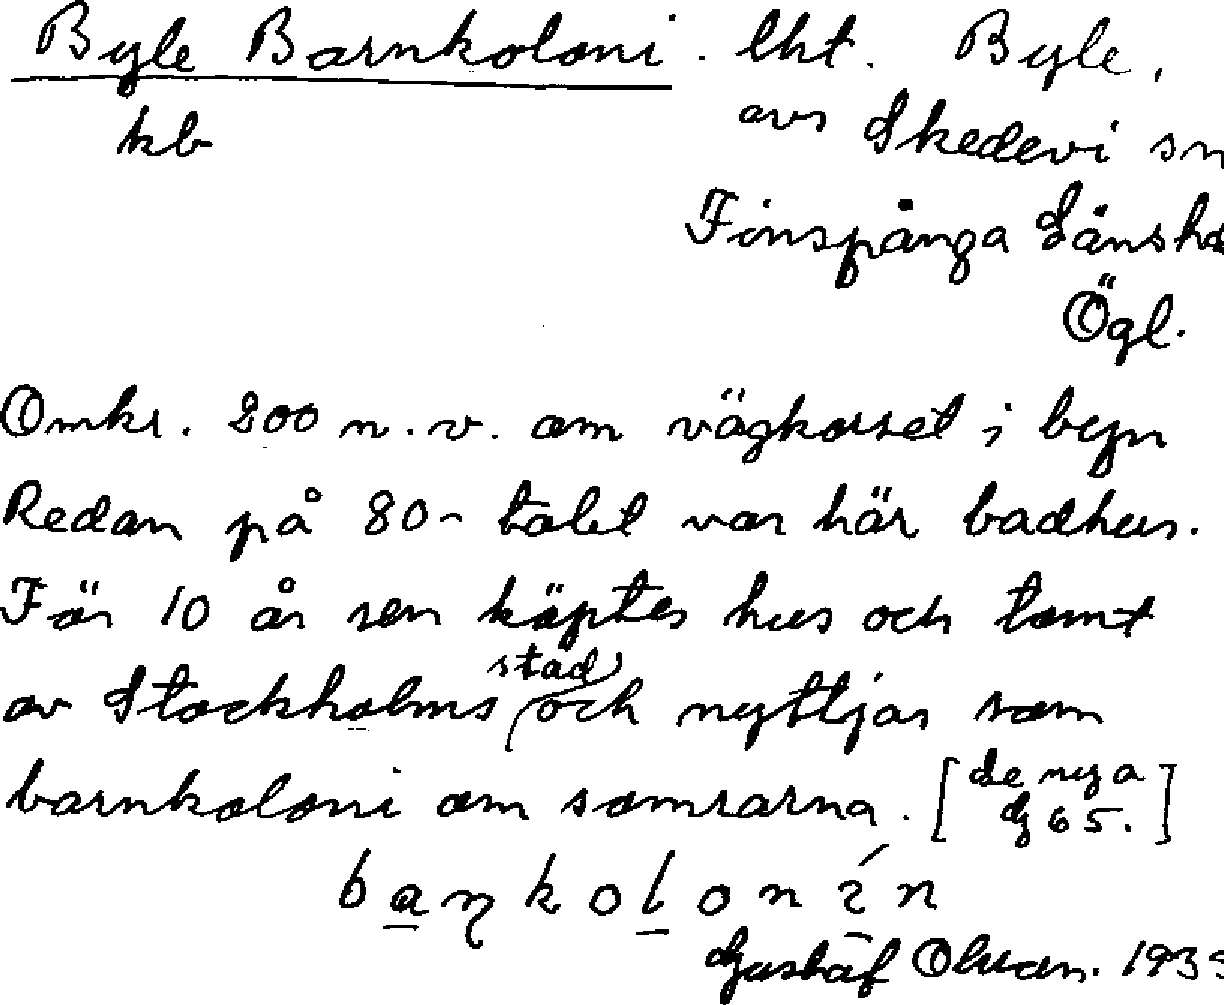 Byle Barnkoloni. lht. Byle,
kb avs Skedevi sn
Finspånga Länshd
Ögl.
Omkr. 200 n.v. om vägkorset i byn
Redan på 80-talet var här badhus.
För 10 år sen köptes hus och tomt
av Stockholms stad och nyttjas som
barnkoloni om somrarna. [se nyg a
G 65.]
baɳkolonin
Gustaf Olsson. 193